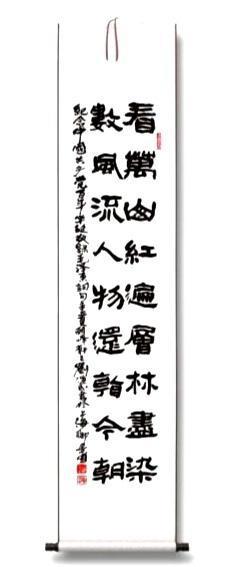 看萬山紅遍層林盡染
數風流人物還看今朝
紀念中國共產黨百年華誕敬錄毛澤東詞句